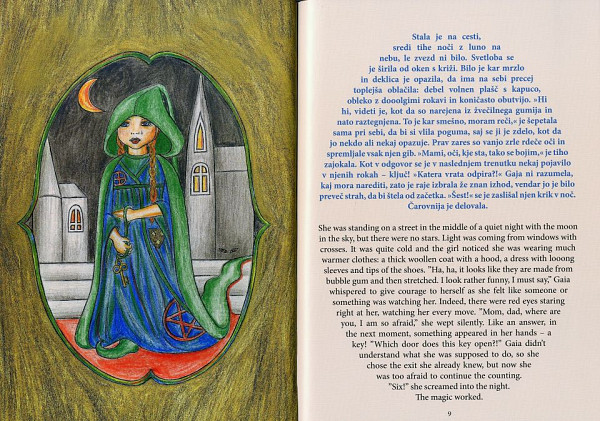 Stala je na cesti,
sredi tihe noči z luno na
nebu, le zvezd ni bilo. Svetloba se
je širila od oken s križi. Bilo je kar mrzlo
in deklica je opazila, da ima na sebi precej
toplejša oblačila: debel volnen plašč s kapuco,
obleko z dooolgimi rokavi in koničasto obutvijo. »Hi
hi, videti je, kot da so narejena iz žvečilnega gumija in
nato raztegnjena. To je kar smešno, moram reči,« je šepetala
sama pri sebi, da bi si vlila poguma, saj se ji je zdelo, kot da
jo nekdo ali nekaj opazuje. Prav zares so vanjo zrle rdeče oči in
spremljale vsak njen gib. »Mami, oči, kje sta, tako se bojim,« je tiho
zajokala. Kot v odgovor se je v naslednjem trenutku nekaj pojavilo
v njenih rokah – ključ! »Katera vrata odpira?!« Gaja ni razumela,
kaj mora narediti, zato je raje izbrala že znan izhod, vendar jo je bilo
preveč strah, da bi štela od začetka. »Šest!« se je zaslišal njen krik v noč.
Čarovnija je delovala.
She was standing on a street in the middle of a quiet night with the moon
in the sky, but there were no stars. Light was coming from windows with
crosses. It was quite cold and the girl noticed she was wearing much
warmer clothes: a thick woollen coat with a hood, a dress with looong
sleeves and tips of the shoes. "Ha, ha, it looks like they are made from
bubble gum and then stretched. I look rather funny, I must say," Gaia
whispered to give courage to herself as she felt like someone or
something was watching her. Indeed, there were red eyes staring
right at her, watching her every move. "Mom, dad, where are
you, I am so afraid," she wept silently. Like an answer, in
the next moment, something appeared in her hands – a
key! "Which door does this key open?!" Gaia didn't
understand what she was supposed to do, so she
chose the exit she already knew, but now she
was too afraid to continue the counting.
"Six!" she screamed into the night.
The magic worked.
9